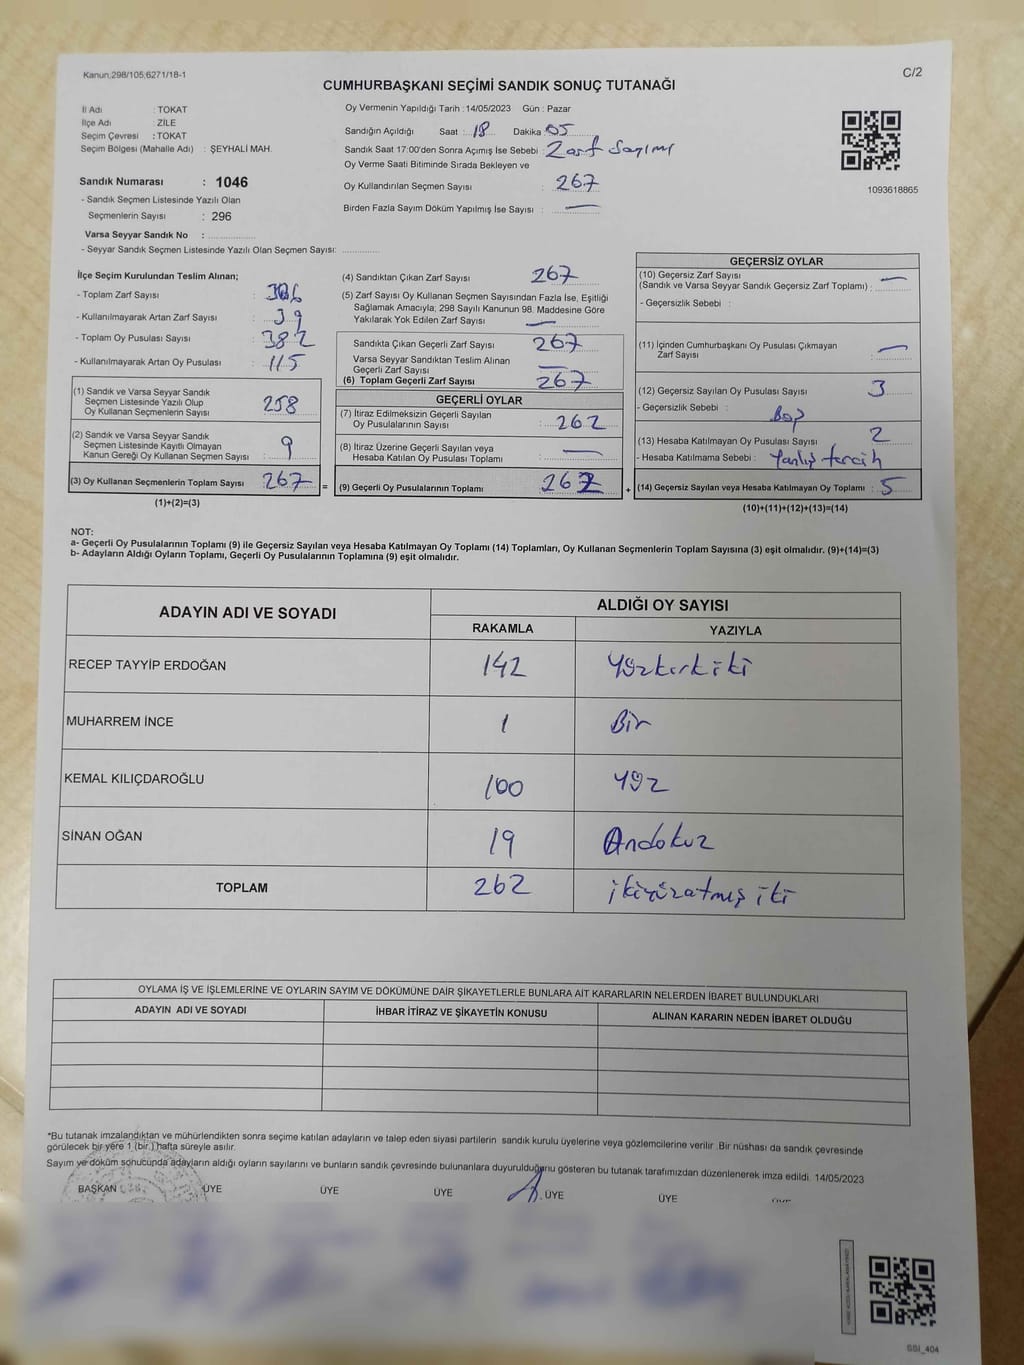 Kanun;298/105;6271/18-1
C/2
CUMHURBAŞKANI SEÇİMİ SANDIK SONUÇ TUTANAĞI
İl Adı : TOKAT
İlçe Adı : ZİLE
Seçim Çevresi : TOKAT
Seçim Bölgesi (Mahalle Adı) : ŞEYHALİ MAH.
Sandık Numarası : 1046
- Sandık Seçmen Listesinde Yazılı Olan
Seçmenlerin Sayısı : 296
Varsa Seyyar Sandık No :
- Seyyar Sandık Seçmen Listesinde Yazılı Olan Seçmen Sayısı:
Oy Vermenin Yapıldığı Tarih :14/05/2023 Gün : Pazar
Sandığın Açıldığı Saat : 18 Dakika : 05
Sandık Saat 17:00'den Sonra Açımış İse Sebebi : Zarf Sayımı
Oy Verme Saati Bitiminde Sırada Bekleyen ve
Oy Kullandırılan Seçmen Sayısı : 267
Birden Fazla Sayım Döküm Yapılmış İse Sayısı : —
1093618865
İlçe Seçim Kurulundan Teslim Alınan;
- Toplam Zarf Sayısı :
- Kullanılmayarak Artan Zarf Sayısı : 39
- Toplam Oy Pusulası Sayısı : 382
- Kullanılmayarak Artan Oy Pusulası : 115
(1) Sandık ve Varsa Seyyar Sandık
Seçmen Listesinde Yazılı Olup
Oy Kullanan Seçmenlerin Sayısı : 258
(2) Sandık ve Varsa Seyyar Sandık
Seçmen Listesinde Kayıtlı Olmayan
Kanun Gereği Oy Kullanan Seçmen Sayısı : 9
(3) Oy Kullanan Seçmenlerin Toplam Sayısı : 267 =
(1)+(2)=(3)
(4) Sandıktan Çıkan Zarf Sayısı : 267
(5) Zarf Sayısı Oy Kullanan Seçmen Sayısından Fazla İse, Eşitliği
Sağlamak Amacıyla, 298 Sayılı Kanunun 98. Maddesine Göre
Yakılarak Yok Edilen Zarf Sayısı : —
Sandıkta Çıkan Geçerli Zarf Sayısı : 267
Varsa Seyyar Sandıktan Teslim Alınan
Geçerli Zarf Sayısı : —
(6) Toplam Geçerli Zarf Sayısı : 267
GEÇERLİ OYLAR
(7) İtiraz Edilmeksizin Geçerli Sayılan
Oy Pusulalarının Sayısı : 262
(8) İtiraz Üzerine Geçerli Sayılan veya
Hesaba Katılan Oy Pusulası Toplamı : —
(9) Geçerli Oy Pusulalarının Toplamı : 262 +
GEÇERSİZ OYLAR
(10) Geçersiz Zarf Sayısı
(Sandık ve Varsa Seyyar Sandık Geçersiz Zarf Toplamı) : —
- Geçersizlik Sebebi :
(11) İçinden Cumhurbaşkanı Oy Pusulası Çıkmayan
Zarf Sayısı : —
(12) Geçersiz Sayılan Oy Pusulası Sayısı : 3
- Geçersizlik Sebebi :
(13) Hesaba Katılmayan Oy Pusulası Sayısı : 2
- Hesaba Katılmama Sebebi : Yanlış tercih
(14) Geçersiz Sayılan veya Hesaba Katılmayan Oy Toplamı : 5
(10)+(11)+(12)+(13)=(14)
NOT:
a- Geçerli Oy Pusulalarının Toplamı (9) ile Geçersiz Sayılan veya Hesaba Katılmayan Oy Toplamı (14) Toplamları, Oy Kullanan Seçmenlerin Toplam Sayısına (3) eşit olmalıdır. (9)+(14)=(3)
b- Adayların Aldığı Oyların Toplamı, Geçerli Oy Pusulalarının Toplamına (9) eşit olmalıdır.
ADAYIN ADI VE SOYADI
ALDIĞI OY SAYISI
RAKAMLA YAZIYLA
RECEP TAYYİP ERDOĞAN 142 Yüzkırkiki
MUHARREM İNCE 1 Bir
KEMAL KILIÇDAROĞLU 100 Yüz
SİNAN OĞAN 19 Ondokuz
TOPLAM 262 ikiyüzatmış iki
OYLAMA İŞ VE İŞLEMLERİNE VE OYLARIN SAYIM VE DÖKÜMÜNE DAİR ŞİKAYETLERLE BUNLARA AİT KARARLARIN NELERDEN İBARET BULUNDUKLARI
ADAYIN ADI VE SOYADI İHBAR İTİRAZ VE ŞİKAYETİN KONUSU ALINAN KARARIN NEDEN İBARET OLDUĞU
*Bu tutanak imzalandıktan ve mühürlendikten sonra seçime katılan adayların ve talep eden siyasi partilerin sandık kurulu üyelerine veya gözlemcilerine verilir .Bir nüshası da sandık çevresinde
görülecek bir yere 1 (bir ) hafta süreyle asılır.
Sayım ve döküm sonucunda adayların aldığı oyların sayılarını ve bunların sandık çevresinde bulunanlara duyurulduğunu gösteren bu tutanak tarafımızdan düzenlenerek imza edildi. 14/05/2023
BAŞKAN ÜYE ÜYE ÜYE ÜYE ÜYE
SSI_404